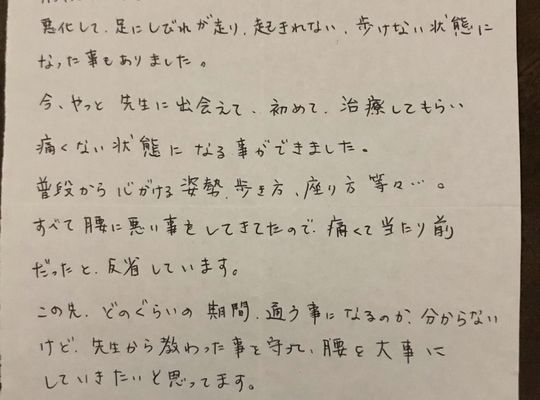 悪化して、足にしびれが走り、起きれない、歩けない状態に
なった事もありました。
今、やっと先生に出会えて、初めて、治療してもらい
痛くない状態になる事ができました。
普段から心がける姿勢、歩き方、座り方 等々…。
すべて腰に悪い事をしてきてたので、痛くて当たり前
だったと、反省しています。
この先、どのぐらいの期間、通う事になるのか、分からない
けど、先生から教わった事を守って、腰を大事に
していきたいと思ってます。